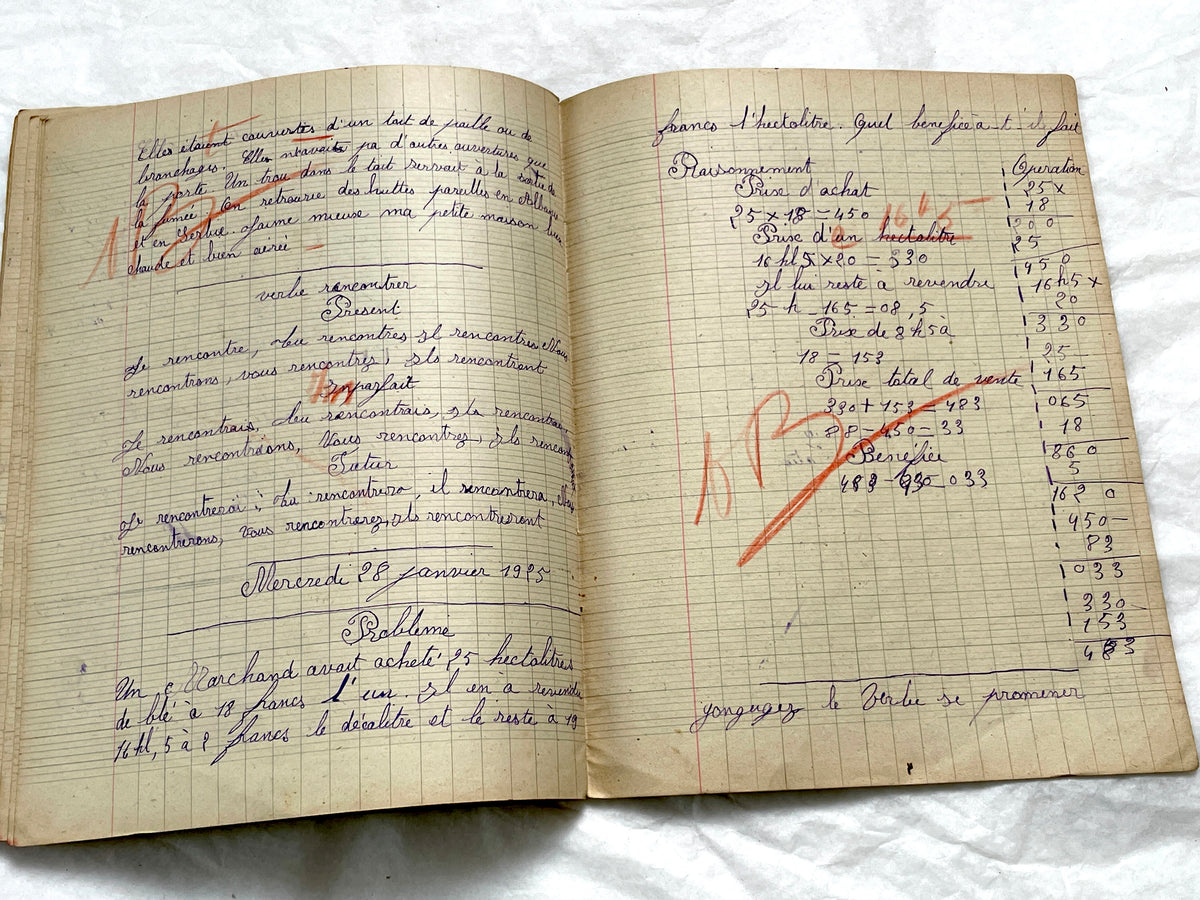 Elles étaient couvertes d'un tait de paille ou de
branchages. Elles n'avait pa d'autres ouvertures que
la porte. Un trou dans le tait servait à la sortie de
la fumée On retrouve des huttes pareilles en Albanie
et en Serbie. J'aime mieuse ma petite maison bien
chaude et bien aérée
verbe rencontrer
Présent
Je rencontre, tu rencontres il rencontre Nous
rencontrons, vous rencontrez, ils rencontrent
Imparfait
Je rencontrais, tu rencontrais, il rencontrait
Nous rencontrions, Vous rencontrez, ils rencont
Futur
Je rencontrerai, tu rencontrera, il rencontrera, Nous
rencontrerons, Vous rencontrerez, ils rencontreront
Mercredi 28 janvier 1925
Problème
Un Marchand avait acheté 25 hectolitres
de blé à 18 francs l'un. Il en à revendu
16 hl, 5 à 2 francs le décalitre et le reste à 18
francs l'hectolitre. Quel benefice a-t-il fait
Raisonnement
Prise d'achat
25 × 18 = 450
16h5
Prise d'un hectolitre
16 hl 5 × 20 = 330
Il lui reste à revendre
25 h - 165 = 08,5
Prix de 8 h 5 à
18 = 153
Prise total de vente
330 + 153 = 483
88 - 450 = 33
Bénéfice
483 - 033
Operation
25 ×
18
200
25
450
16h5 ×
20
330
25 -
165
065
18
860
5
162 0
450 -
83
033
330
153
483
B
yongugez le Verbe se promener